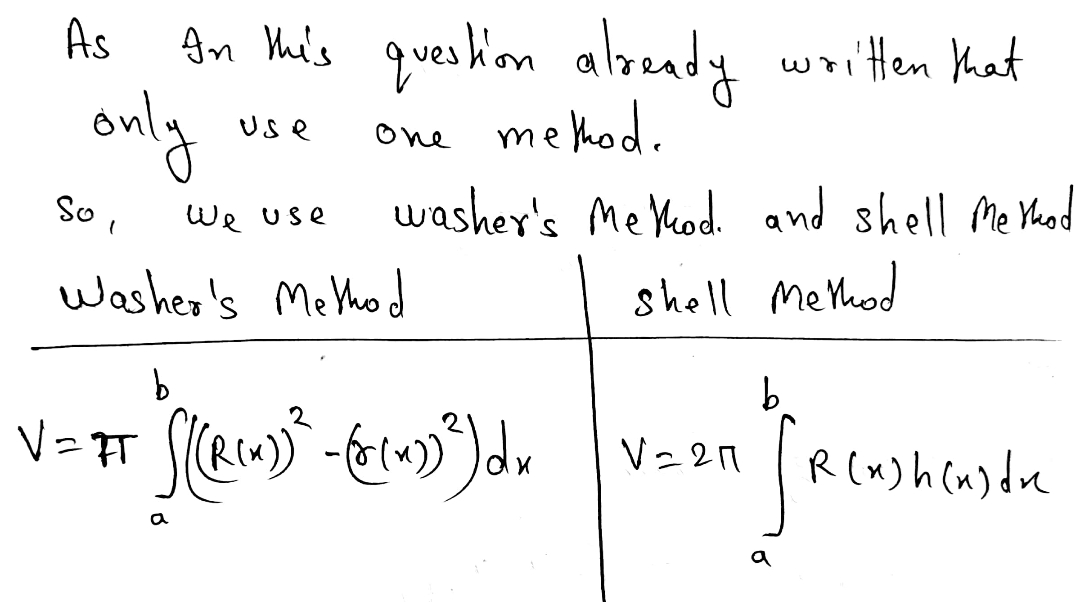 As In this question already written that
only use one method.
So, we use washer's Method. and shell Method
Washer's Method
shell Method
V = π ∫_a^b ((R(x))² - (r(x))²) dx
V = 2π ∫_a^b R(x) h(x) dx